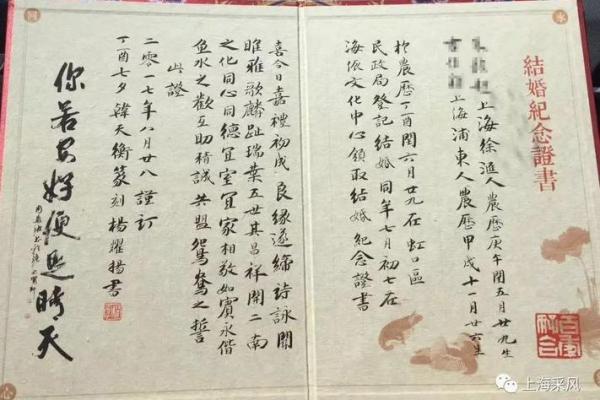 結婚紀念證書
上海徐滙人農歷庚午閏五月廿九生
上海浦東人農歷甲戌十一月廿六生
於農歷丁酉閏六月廿九在虹口區
民政局登記結婚同年七月初七在
海派文化中心領取結婚紀念證書
百年好合
喜今日嘉禮初成良緣遂締詩詠關
雎雅歌麟趾瑞葉五世其昌祥開二南
之化同心同德宜室宜家相敬如賓永偕
魚水之歡互助精誠共盟鴛鴦之誓
此證
二零一七年八月廿八謹訂
丁酉七夕韓天衡篆刻楊耀揚書
你若安好便是晴天
永
同
心
上海采风